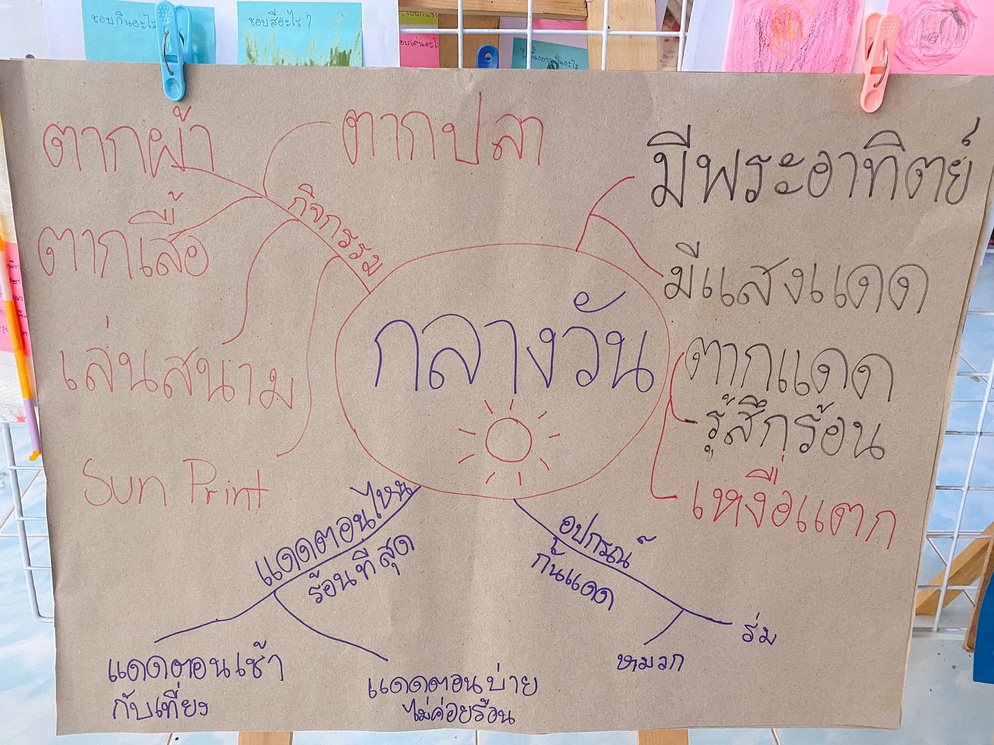 ชอบกินอะไร
ชอบสีอะไร?
ตากผ้า
ตากปลา
กิจกรรม
ตากเสื้อ
เล่นสนาม
Sun Print
มีพระอาทิตย์
มีแสงแดด
กลางวัน
ตากแดด
รู้สึกร้อน
เหงื่อแตก
แดดตอนไหน
ร้อนที่สุด
แดดตอนเช้า
กับเที่ยง
แดดตอนบ่าย
ไม่ค่อยร้อน
อุปกรณ์
กันแดด
หมวก
ร่ม